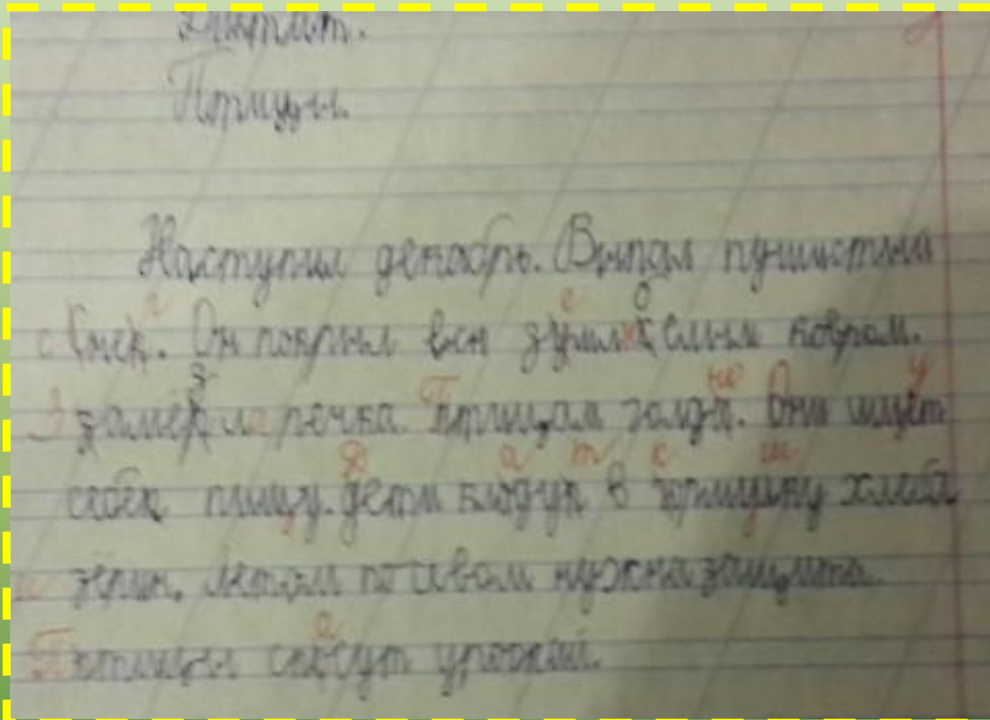 Диктант.
Птицы.
Наступил декабрь. Выпал пушистый
снек. Он покрыл всю землю белым ковром.
замёрзла речка птицам голды. Они ищет
себек пищу. дети кладук в кормушку хлеба
зёрна. Летом посевам нужна защита.
птицы спасут урожай.